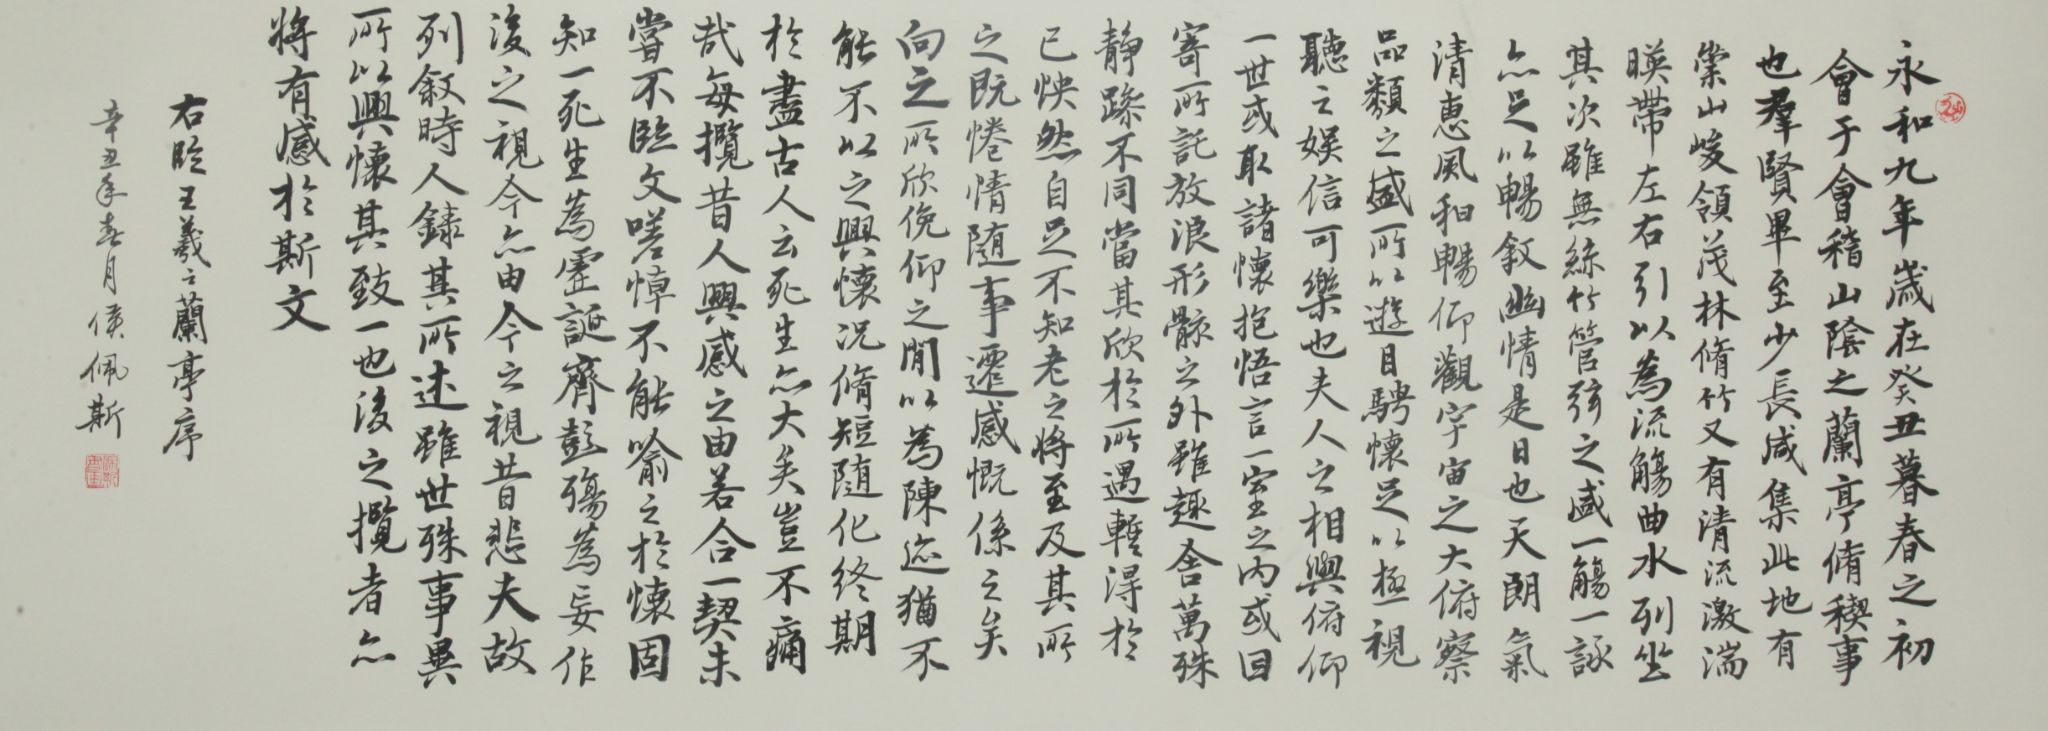 永和九年歲在癸丑暮春之初
會于會稽山陰之蘭亭脩稧事
也羣賢畢至少長咸集此地有
崇山峻領茂林脩竹又有清流激湍
暎帶左右引以為流觴曲水列坐
其次雖無絲竹管弦之盛一觴一詠
亦足以暢敘幽情是日也天朗氣
清惠風和暢仰觀宇宙之大俯察
品類之盛所以遊目騁懷足以極視
聽之娛信可樂也夫人之相與俯仰
一世或取諸懷抱悟言一室之內或因
寄所託放浪形骸之外雖趣舍萬殊
靜躁不同當其欣於所遇暫得於
己怏然自足不知老之將至及其所
之既惓情隨事遷感慨係之矣
向之所欣俛仰之閒以為陳迹猶不
能不以之興懷況脩短隨化終期
於盡古人云死生亦大矣豈不痛
哉每攬昔人興感之由若合一契未
嘗不臨文嗟悼不能喻之於懷固
知一死生為虛誕齊彭殤為妄作
後之視今亦由今之視昔悲夫故
列敘時人錄其所述雖世殊事異
所以興懷其致一也後之攬者亦
將有感於斯文
右臨王羲之蘭亭序
辛丑年春月侯佩斯